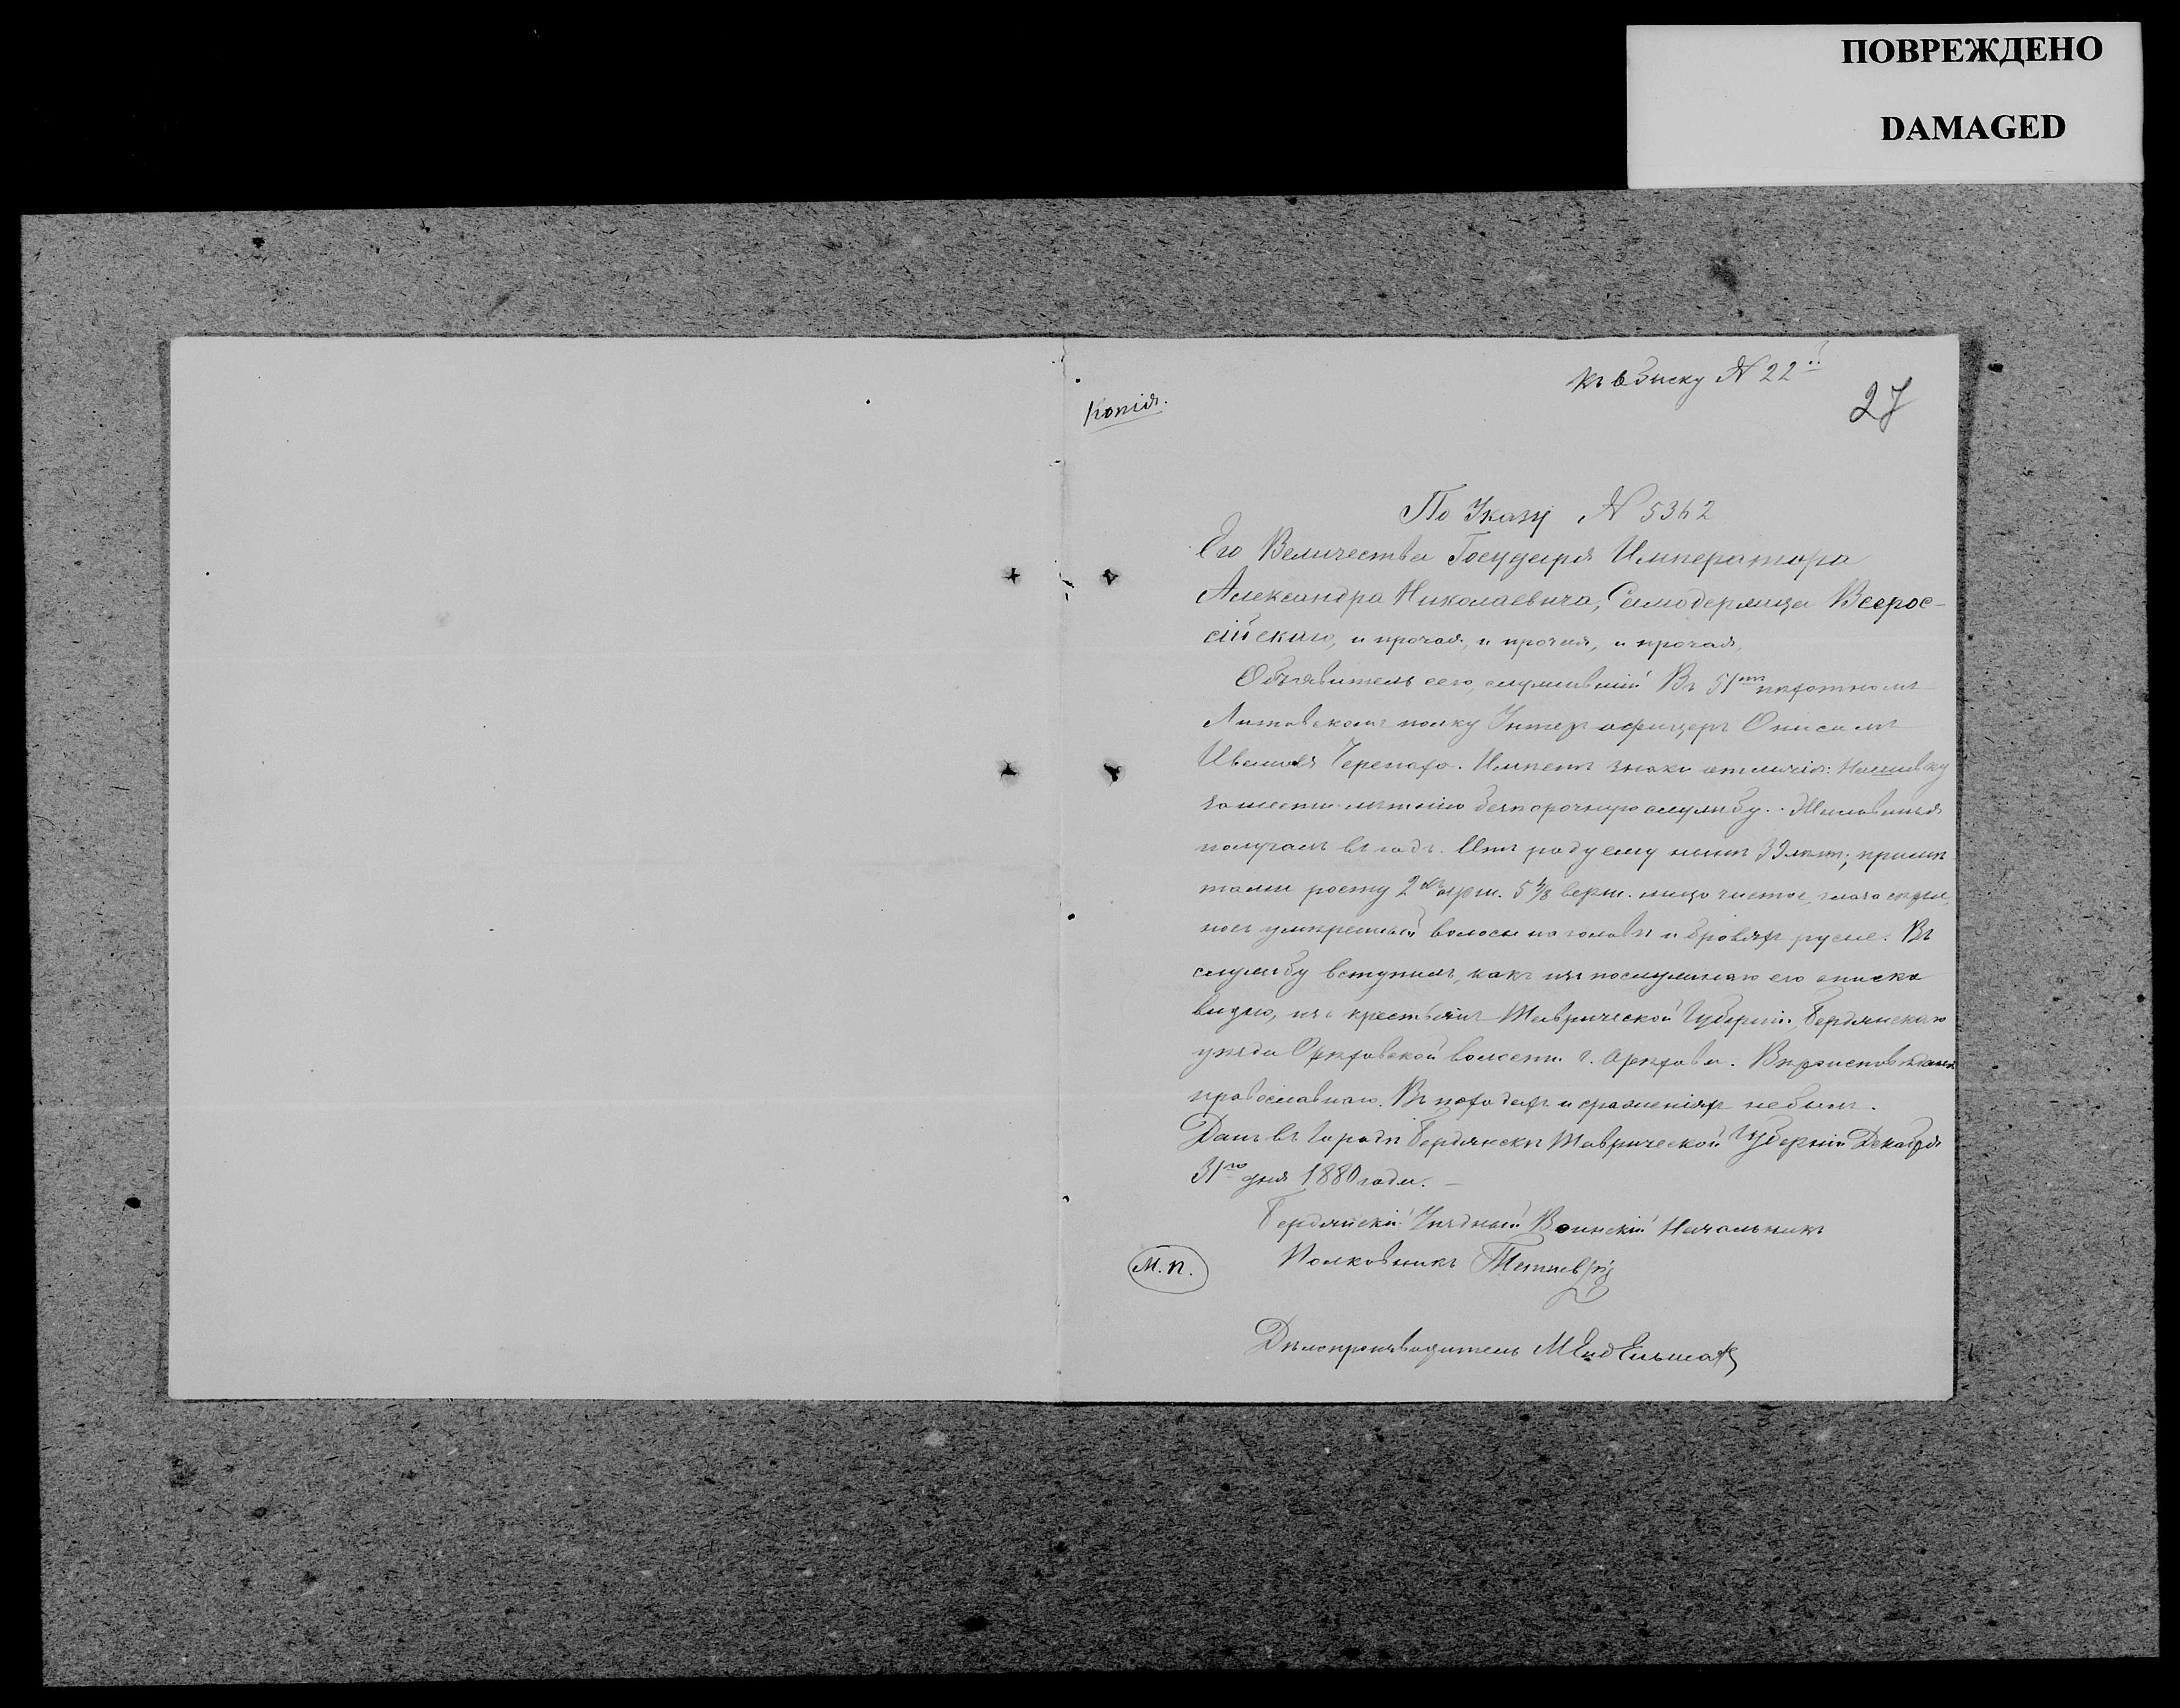 ПОВРЕЖДЕНО
DAMAGED
Къ обыску № 22й
27
Копія.
По Указу № 5362
Его Величества Государя Императора
Александра Николаевича, Самодержца Всерос-
сійскаго, и прочая, и прочая, и прочая,
Объявитель сего, служившій Въ 51мъ пѣхотномъ
Литовскомъ полку Унтеръ офицеръ Онисимъ
Ивановъ Черепаха. Имѣетъ знаки отличія: Нашивку
за шести лѣтнію безпорочную службу. Жалованья
получалъ въ годъ. Отъ роду ему нынѣ 39 лѣтъ; примѣ
тами росту 2 арш. 5 4/8 верш. лицо чистое, глаза сѣрые,
носъ умѣренный волосы на головѣ и бровяхъ русые. Въ
службу вступилъ, какъ изъ послужнаго его списка
видно, изъ крестьянъ Таврической Губерніи, Бердянскаго
уѣзда Орѣховской волости г. Орѣхова. Вѣроисповѣданія
православнаго. Въ походахъ и сраженіяхъ небылъ.
Данъ въ Городѣ Бердянскѣ Таврической Губерніи Декабря
31го дня 1880 года. —
Бердянскій Уѣздный Воинскій Начальникъ
М.П.
Полковникъ
Дѣлопроизводитель